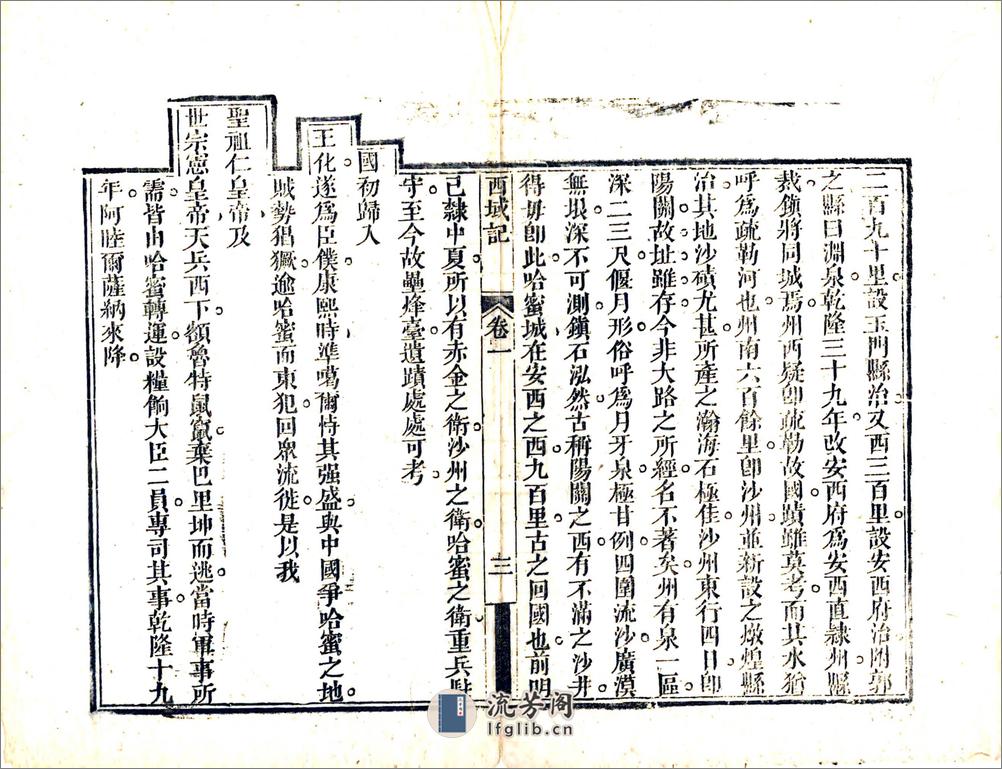 二百九十里設玉門縣治又西三百里設安西府治附郭
之縣曰淵泉乾隆三十九年改安西府為安西直隸州縣
裁鎮將同城焉州西疑即疏勒故國蹟雖莫考而其水猶
呼為疏勒河也州南六百餘里即沙州並新設之燉煌縣
治其地沙磧尤甚所產之瀚海石極佳沙州東行四日即
陽關故址雖存今非大路之所經名不著矣州有泉一區
深二三尺偃月形俗呼為月牙泉極甘例四圍流沙廣漠
無垠深不可測鎮石泓然古稱陽關之西有不滿之沙井
得毋即此哈蜜城在安西之西九百里古之回國也前明
西域記 卷一 三
已隸中夏所以有赤金之衛沙州之衛哈蜜之衛重兵駐
守至今故壘烽臺遺蹟處處可考
國初歸入
王化遂為臣僕康熙時準噶爾恃其强盛與中國爭哈蜜之地
賊勢猖獗逾哈蜜而東犯回眾流徙是以我
聖祖仁皇帝及
世宗憲皇帝天兵西下額魯特鼠竄棄巴里坤而逃當時軍事所
需皆由哈蜜轉運設糧餉大臣二員專司其事乾隆十九
年阿睦爾薩納來降
流芳阁
lfglib.cn